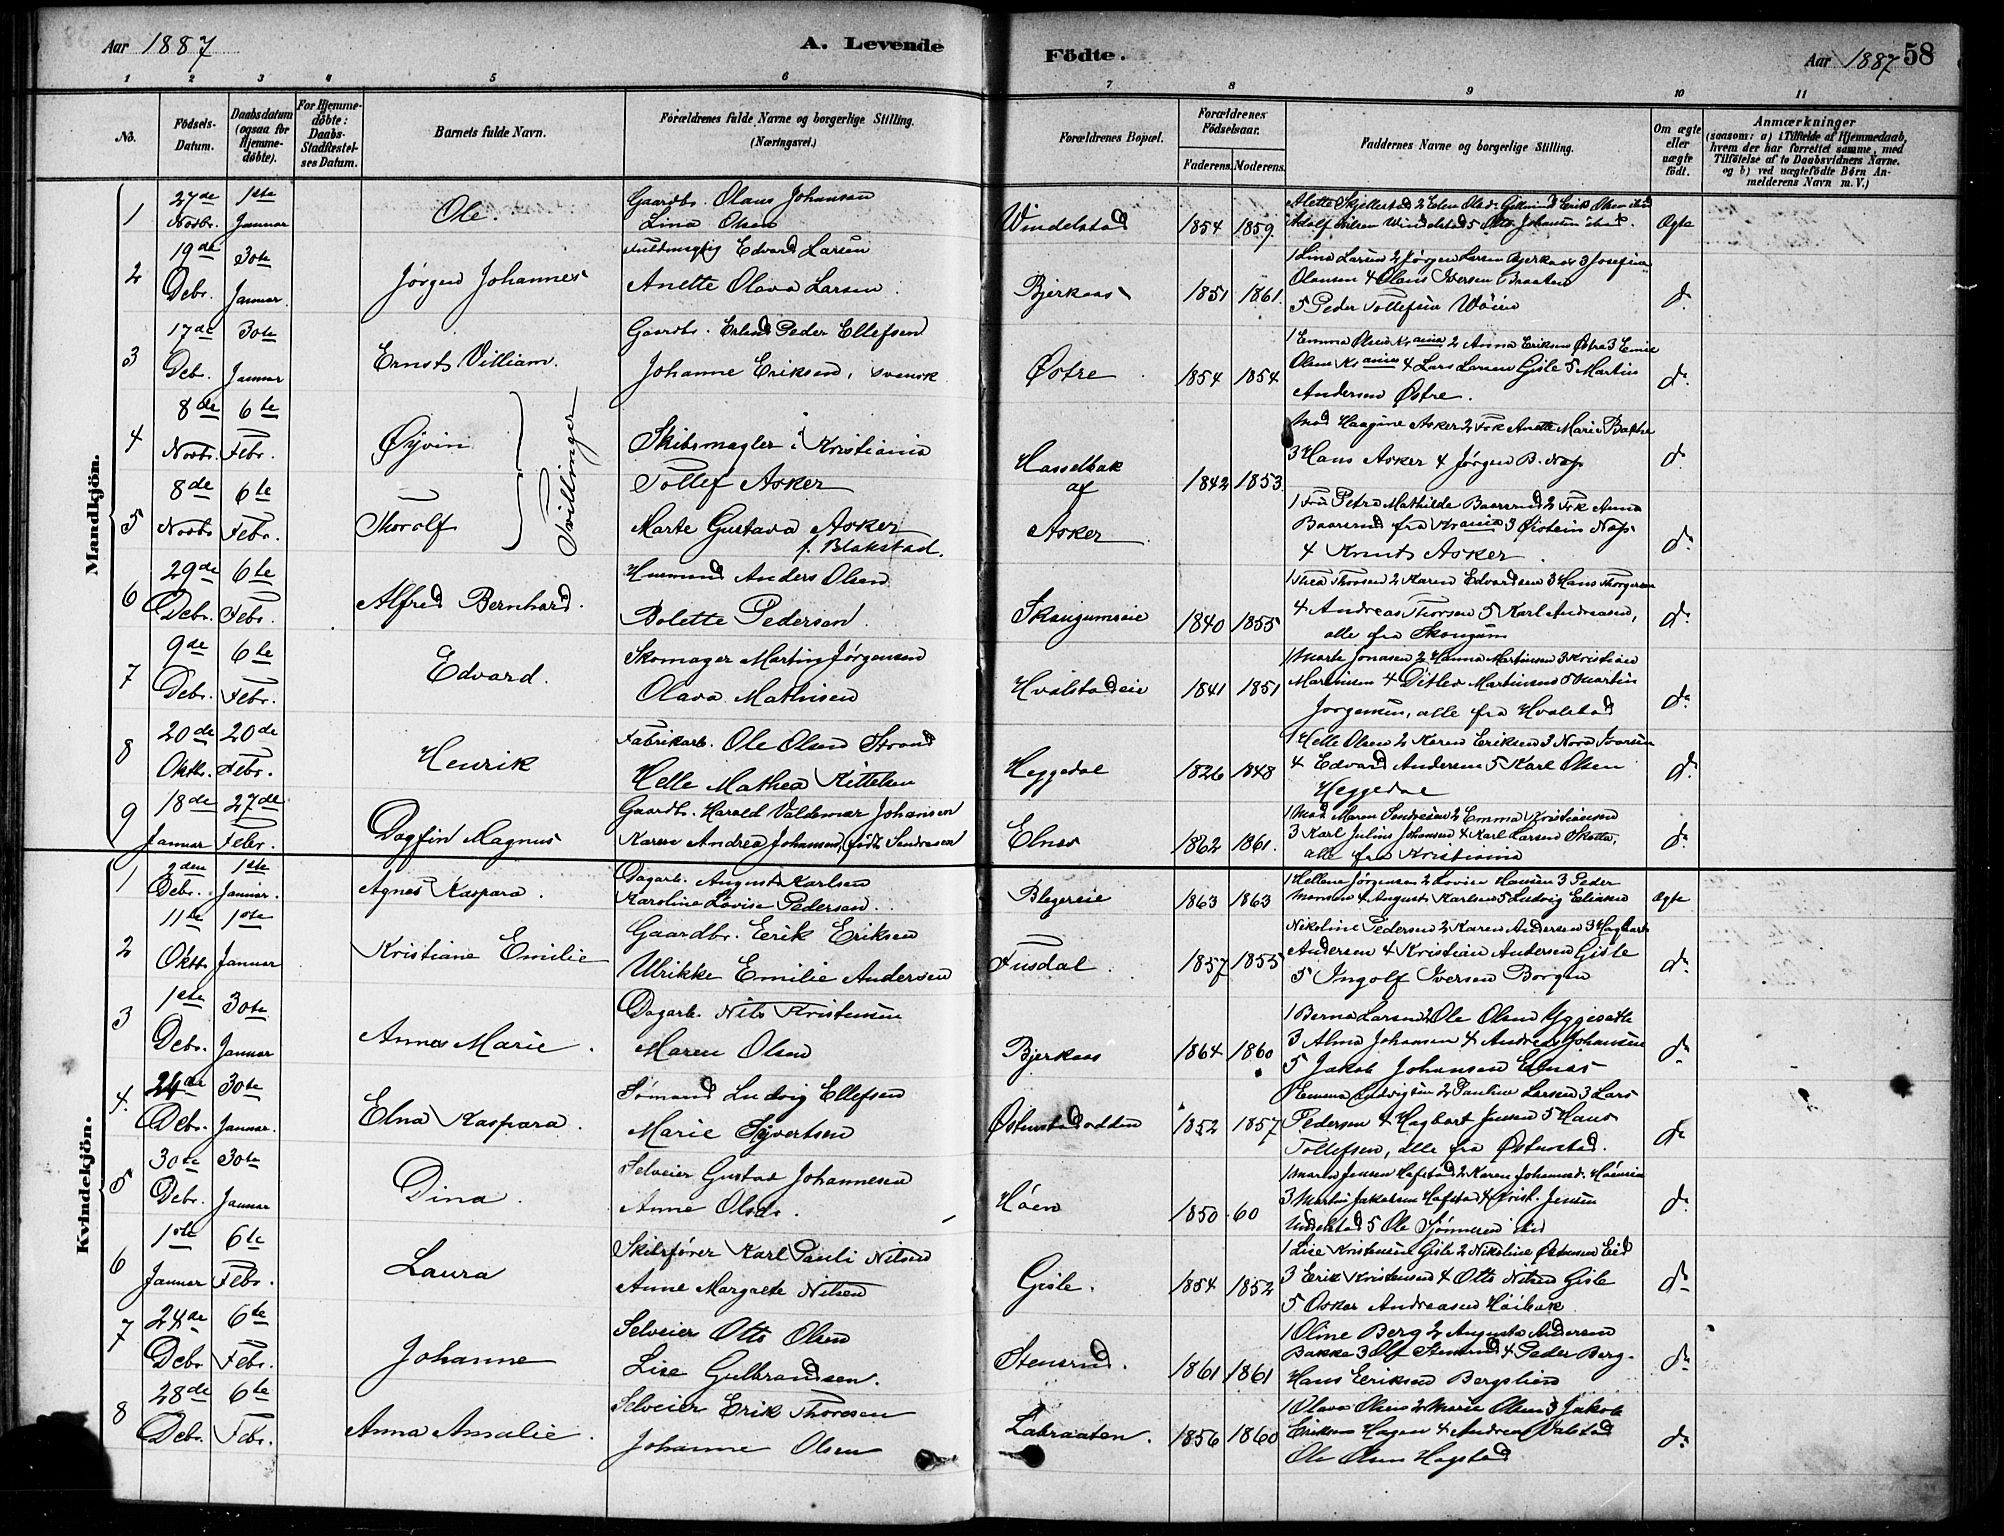 Aar 1887
A. Levende
Födte.
Aar 1887 58
1 2 3 4 5 6 7 8 9 10 11
No.
Födsels-Datum.
Daabsdatum (ogsaa for Hjemmedöbte).
For Hjemmedöbte: Daabs-Stadfæstelses Datum.
Barnets fulde Navn.
Forældrenes fulde Navne og borgerlige Stilling. (Næringsvei.)
Forældrenes Bopæl.
Forældrenes Födselsaar.
Faderens. Moderens.
Faddernes Navne og borgerlige Stilling.
Om ægte eller uægte födt.
Anmærkninger
(saasom: a) i Tilfælde af Hjemmedaab, hvem der har forrettet samme, med Tilföielse af to Daabsvidners Navne. og b) ved uægtefödte Börn Anmelderens Navn m. V.)
Mandkjön.
1 27de Novbr. 1ste Januar Ole. Gaardbr. Olaus Johansen
Lina Olsen Windelstad 1854 1859 Ægte
2 19de Debr. 30te Januar Jørgen Johannes Edvard Larsen
Anette Olava Larsen Bjerkaas 1851 1861 1 Lina Larsen 2 Jørgen Larsen Bjerkaas 3 Josefine
Olausen 4 Olaus Iversen Braaten
5 Peder Tollefsen Wöien do
3 17de Debr. 30te Januar Ernst Villiam. Gaardbr. Erland Peder Ellefsen
Johanne Eriksen, svensk Østre 1854 1854 1 Emma Olsen Krania 2 Anna Eriksen Østre 3 Emil
Olsen Krania 4 Lars Larsen Gisle 5 Martin
Andersen Østre. do
4 8de Novbr. 6te Febr. Øyvin Tvillinger Skibsmægler i Kristiania
Tollef Asker Hasselbak af Asker 1842 1853 Mad Haagine Asker 2 Frk Anette Marie Bakke
3 Hans Asker 4 Jørgen B. Næs do
5 8de Novbr 6te Febr. Thorolf Marte Gustava Asker
f. Blakstad. 1 Fru Petra Mathilde Baarsrud 2 Frk Anna
Baarsrud fra Krania 3 Øistein Næs
4 Knut Asker do
6 29de Debr. 6te Febr. Alfred Bernhard. Husmand Anders Olsen
Bolette Pedersen. Skaugumseie 1840 1855 1 Thea Thorsen 2 Karen Edvardsen 3 Hans Thorgersen
4 Andreas Thorsen 5 Karl Andreasen,
alle fra Skaugum do
7 9de Debr. 6te Febr. Edvard. Skomager Martin Jørgensen
Olava Mathisen Hvalstadeie 1841 1851 1 Marte Jonasen 2 Hanna Martinsen 3 Kristian
Martinsen 4 Ditlev Martinsen 5 Martin
Jørgensen, alle fra Hvalstad do
8 20de Oktbr. 20de Febr. Henrik Fabrikarb. Ole Olsen Strand
Helle Mathea Kittelsen Heggedal 1826 1848 1 Helle Olsen 2 Karen Eriksen 3 Nora Ivarsen
4 Edvard Andersen 5 Karl Olsen
Heggedal do
9 18de Januar 27de Febr. Dagfin Magnus Gaardbr. Harald Valdemar Johansen
Karen Andrea Johansen, født Sendresen Elnes 1862 1861. 1 Mad Maren Sendresen 2 Emma Kristiansen
3 Karl Julius Johansen 4 Karl Larsen Skotta,
alle fra Kristiania do
Kvindekjön.
1 2den Debr. 1ste Januar. Agnes Kaspara. Dagarb. August Karlsen
Karoline Lovise Pedersen. Blegereie 1863 1863 1 Hellene Jørgensen 2 Lovise Hansen 3 Peder
Monsen 4 August Karlsen 5 Ludvig Eliasen Ægte
2 11te Oktbr. 1ste Januar Kristiane Emilie Gaardbr. Eerik Eriksen
Ulrikke Emilie Andersen Fusdal 1857 1855 Nikoline Pedersen 2 Karen Andersen 3 Hagbart
Andersen 4 Kristian Andersen Gisle
5 Ingolf Iversen Borgen do
3 1ste Debr. 30te Januar Anna Marie. Dagarb. Nils Kristensen
Maren Olsen Bjerkaas 1864 1860 1 Berna Larsen 2 Ole Olsen Yggeseth
3 Alma Johansen 4 Andreas Johansen
5 Jakob Johansen Elnes do
4. 24de Debr. 30te Januar. Elna Kaspara. Sømand Ludvig Ellefsen
Marie Syvertsen Østenstadodden 1852 1857 Emma Ludvigsen 2 Pauline Larsen 3 Lars
Pedersen 4 Hagbart Jensen 5 Hans
Tollefsen, alle fra Østenstad. do
5 30te Debr. 30te Januar Dina. Selveier Gustav Johannesen
Anne Olsdr. Höen 1850 60 1 Maren Jensen Hofstad 2 Karen Johannesd. Höeneie
3 Martin Jakobsen Hofstad 4 Krist. Jensen
Undelstad 5 Ole do
6 1ste Januar 6te Febr. Laura Skibsfører Karl Pauli Nilsen
Anne Margrete Nilsen Gisle. 1854 1852 1 Lise Kristensen Gisle 2 Nikoline Østensen Eid
3 Eerik Kristensen 4 Otto Nilsen Gisle
5 Oskar Andreasen Höibak do
7 24de Debr. 6te Febr. Johanne Selveier Otto Olsen
Lise Gulbrandsen. Stensrud. 1861 1861 1 Oline Berg 2 Augusta Andersen
Bakke 3 Olf Stensrud 4 Peder Berg.
Hans Eriksen Bergslien do
8 28de Debr. 6te Febr. Anna Amalie. Selveier Erik Thoresen
Johanne Olsen Labraaten. 1856 1860 1 Olava Olsen 2 Marie Olsen 3 Jakob
Eriksen Hagen 4 Andreas Valstad
Ole Olsen Hogstad do